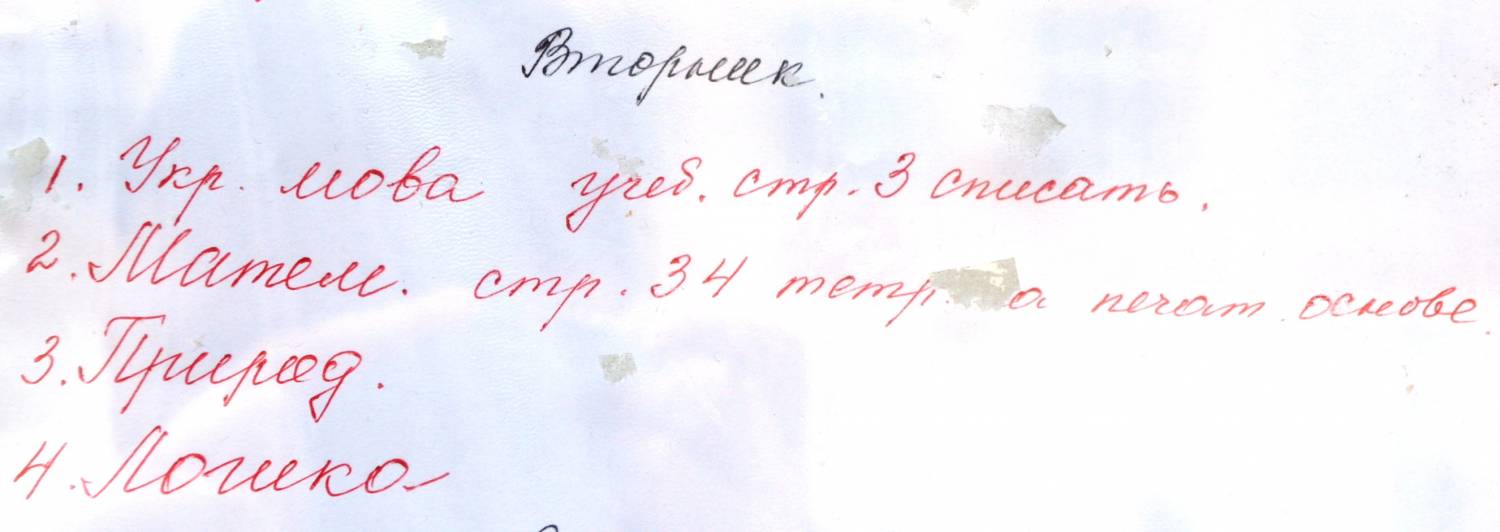 Вторник.
1. Укр. мова учеб. стр. 3 списать.
2. Матем. стр. 34 тетр. а печат. основе.
3. Природ.
4. Логика